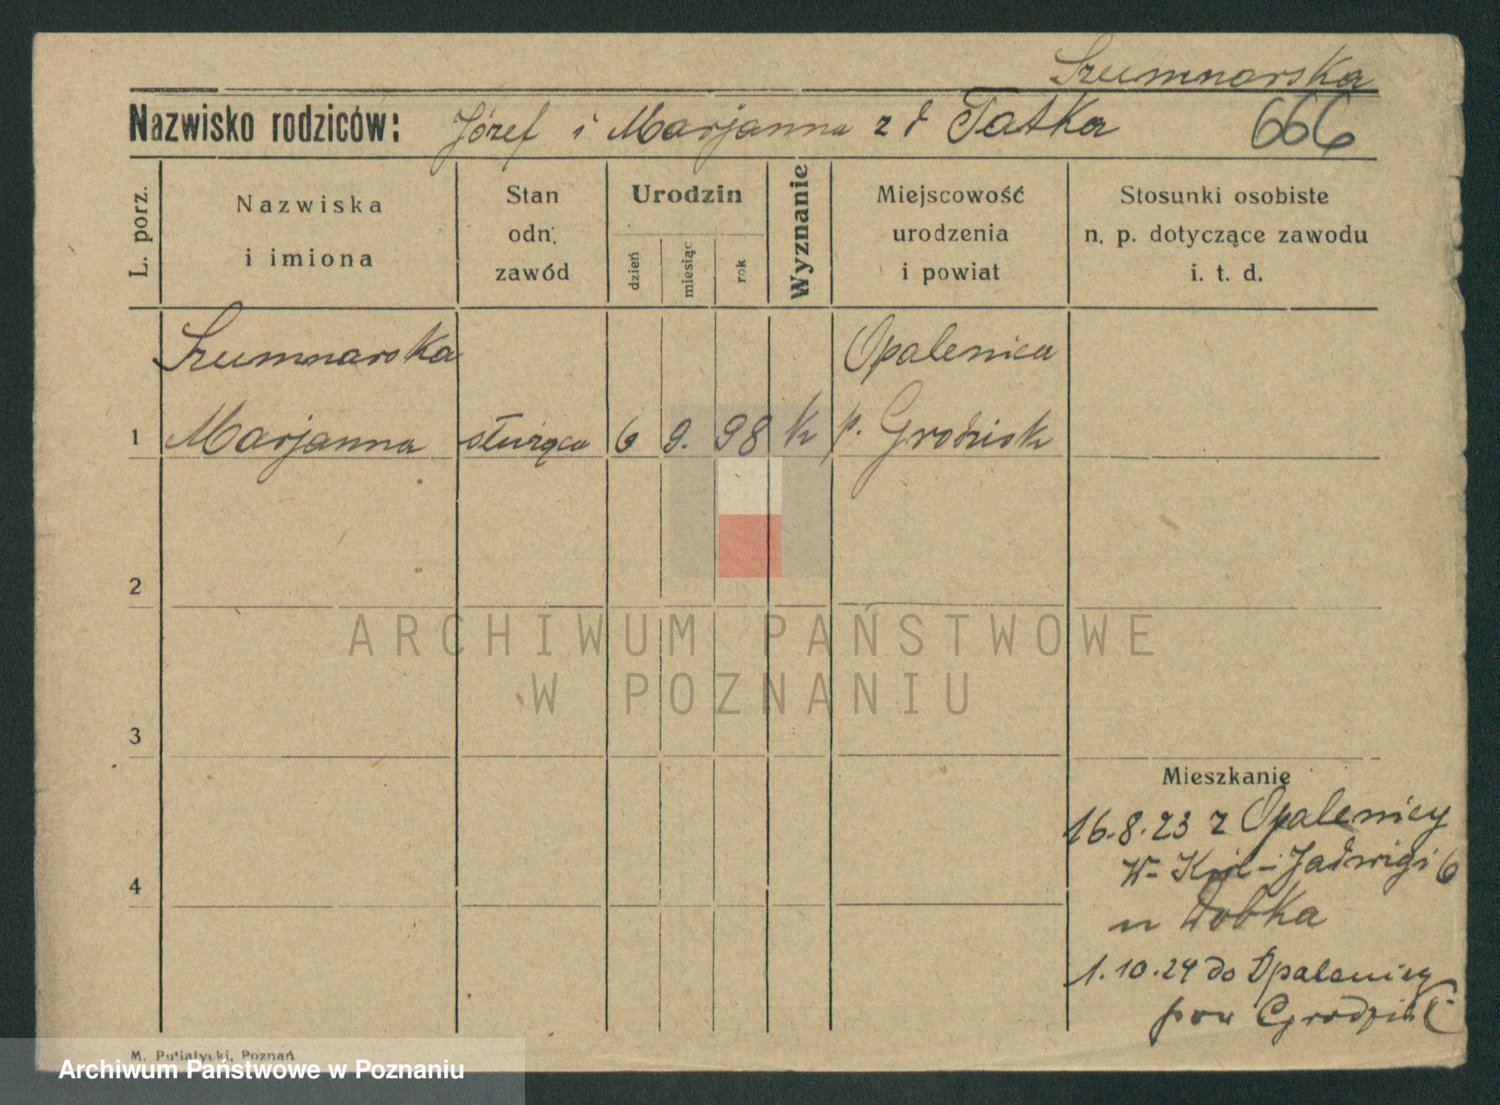 Szumnarska
Nazwisko rodziców: Józef i Marjanna z d Tatka 666
L. porz.
Nazwiska
i imiona
Stan
odn.
zawód
Urodzin
dzień
miesiąc
rok
Wyznanie
Miejscowość
urodzenia
i powiat
Stosunki osobiste
n. p. dotyczące zawodu
i. t. d.
Szumnarska Opalenica
1 Marjanna służąca 6 9. 98 k p. Grodzisk
2
ARCHIWUM PAŃSTWOWE
W POZNANIU
3
Mieszkanie
16.8.23 z Opalenicy
W- Jadwigi 6
4
u Wobka
1.10.24 do Opalenicy
pow Grodzisk
M. Putiatycki, Poznań
Archiwum Państwowe w Poznaniu